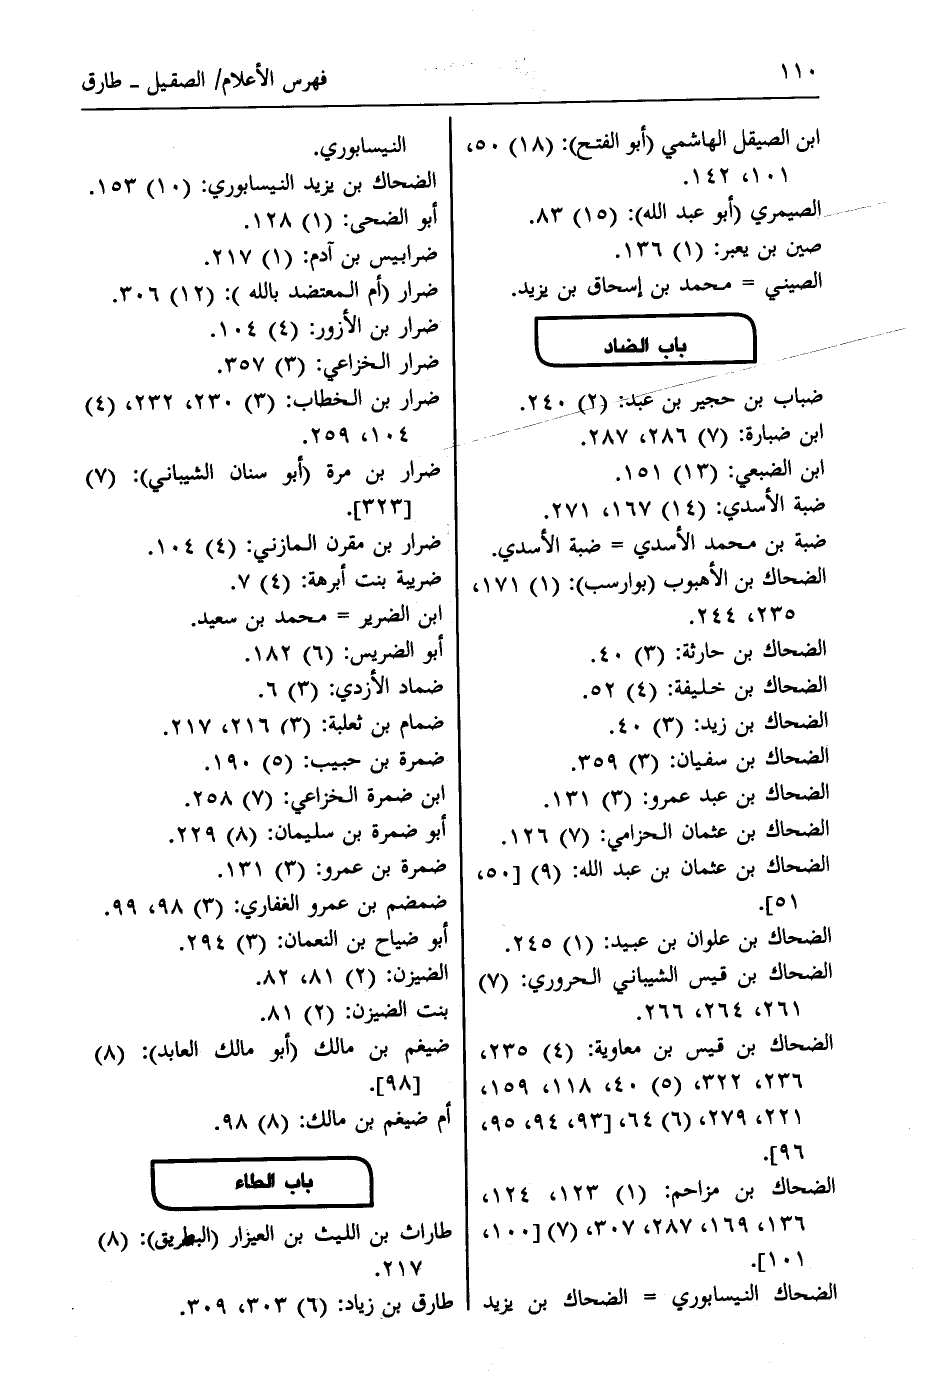 ١١٠
فهرس الأعلام/ الصقيل ـ طارق
ابن الصيقل الهاشمي (أبو الفتح): (١٨) ٥٠،
١٠١، ١٤٢.
الصيمري (أبو عبد الله): (١٥) ٨٣.
صين بن يعبر: (١) ١٣٦.
الصيني = محمد بن إسحاق بن يزيد.
باب الضاد
ضباب بن حجير بن عبد: (٢) ٢٤٠.
ابن ضبارة: (٧) ٢٨٦، ٢٨٧.
ابن الضبعي: (١٣) ١٥١.
ضبة الأسدي: (١٤) ١٦٧، ٢٧١.
ضبة بن محمد الأسدي = ضبة الأسدي.
الضحاك بن الأهبوب (بوارسب): (١) ١٧١،
٢٣٥، ٢٤٤.
الضحاك بن حارثة: (٣) ٤٠.
الضحاك بن خليفة: (٤) ٥٢.
الضحاك بن زيد: (٣) ٤٠.
الضحاك بن سفيان: (٣) ٣٥٩.
الضحاك بن عبد عمرو: (٣) ١٣١.
الضحاك بن عثمان الحزامي: (٧) ١٢٦.
الضحاك بن عثمان بن عبد الله: (٩) [٥٠،
٥١].
الضحاك بن علوان بن عبيد: (١) ٢٤٥.
الضحاك بن قيس الشيباني الحروري: (٧)
٢٦١، ٢٦٤، ٢٦٦.
الضحاك بن قيس بن معاوية: (٤) ٢٣٥،
٢٣٦، ٣٢٢، (٥) ٤٠، ١١٨، ١٥٩،
٢٢١، ٢٧٩، (٦) ٦٤، [٩٣، ٩٤، ٩٥،
٩٦].
الضحاك بن مزاحم: (١) ١٢٣، ١٢٤،
١٣٦، ١٦٩، ٢٨٧، ٣٠٧، (٧) [١٠٠،
١٠١].
الضحاك النيسابوري = الضحاك بن يزيد
النيسابوري.
الضحاك بن يزيد النيسابوري: (١٠) ١٥٣.
أبو الضحى: (١) ١٢٨.
ضرابيس بن آدم: (١) ٢١٧.
ضرار (أم المعتضد بالله ): (١٢) ٣٠٦.
ضرار بن الأزور: (٤) ١٠٤.
ضرار الخزاعي: (٣) ٣٥٧.
ضرار بن الخطاب: (٣) ٢٣٠، ٢٣٢، (٤)
١٠٤، ٢٥٩.
ضرار بن مرة (أبو سنان الشيباني): (٧)
[٣٢٣].
ضرار بن مقرن المازني: (٤) ١٠٤.
ضريبة بنت أبرهة: (٤) ٧.
ابن الضرير = محمد بن سعيد.
أبو الضريس: (٦) ١٨٢.
ضماد الأزدي: (٣) ٦.
ضمام بن ثعلبة: (٣) ٢١٦، ٢١٧.
ضمرة بن حبيب: (٥) ١٩٠.
ابن ضمرة الخزاعي: (٧) ٢٥٨.
أبو ضمرة بن سليمان: (٨) ٢٢٩.
ضمرة بن عمرو: (٣) ١٣١.
ضمضم بن عمرو الغفاري: (٣) ٩٨، ٩٩.
أبو ضياح بن النعمان: (٣) ٢٩٤.
الضيزن: (٢) ٨١، ٨٢.
بنت الضيزن: (٢) ٨١.
ضيغم بن مالك (أبو مالك العابد): (٨)
[٩٨].
أم ضيغم بن مالك: (٨) ٩٨.
باب الطاء
طاراث بن الليث بن العيزار (البطريق): (٨)
٢١٧.
طارق بن زياد: (٦) ٣٠٣، ٣٠٩.